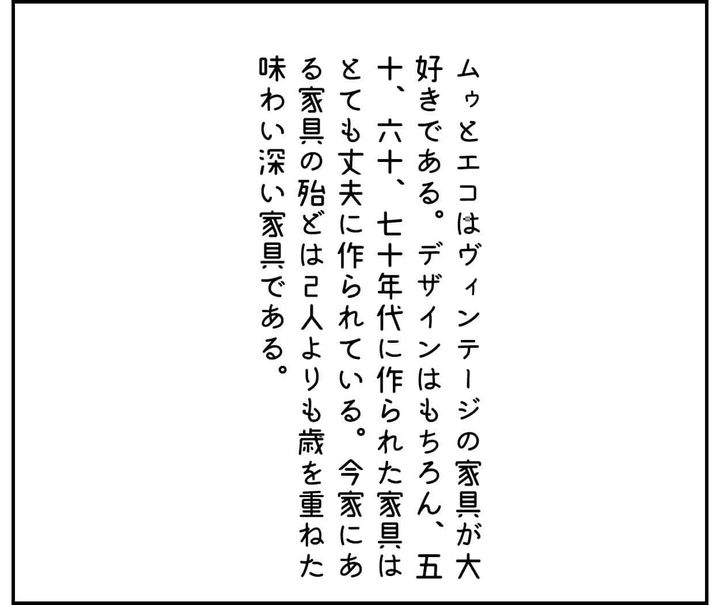 ムゥとエコはヴィンテージの家具が大
好きである。デザインはもちろん、五
十、六十、七十年代に作られた家具は
とても丈夫に作られている。今家にあ
る家具の殆どは2人よりも歳を重ねた
味わい深い家具である。